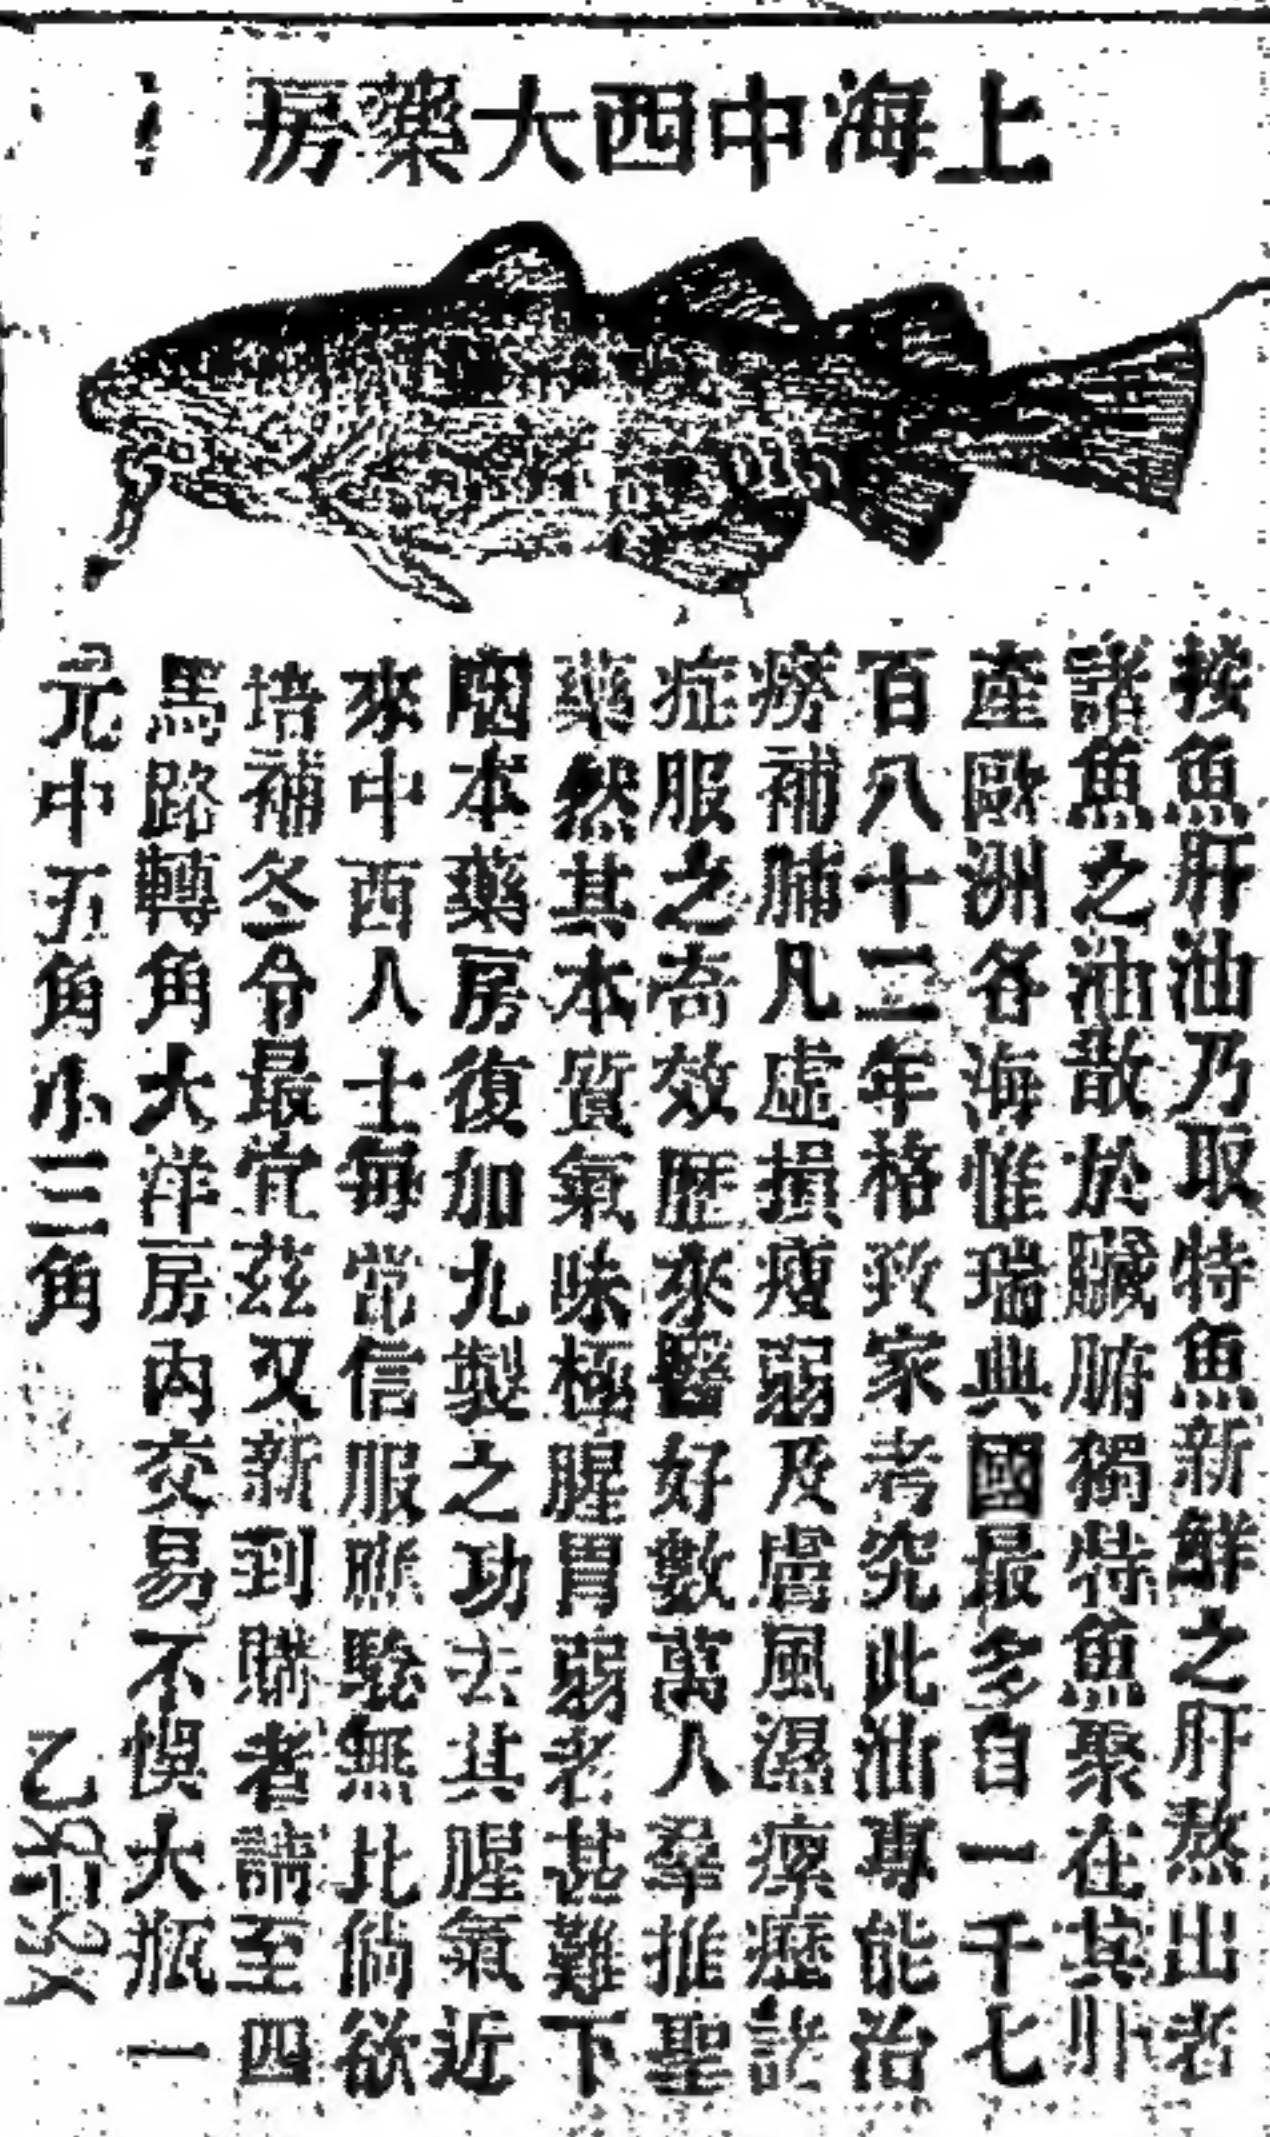 上海中西大藥房
按魚肝油乃取特魚新鮮之肝熬出者
諸魚之油散於臟腑獨特魚聚在其肝
產歐洲各海惟瑞典國最多自一千七
百八十二年格致家考究此油專能治
癆補肺凡虛損瘦弱及膚風濕瘰癧諸
症服之奇效歷來醫好數萬人羣推聖
藥然其本質氣味極腥胃弱者甚難下
咽本藥房復加九製之功去其腥氣近
來中西人士每常信服應驗無比倘欲
培補冬令最宜茲又新到購者請至四
馬路轉角大洋房內交易不悞大瓶一
元中五角小三角